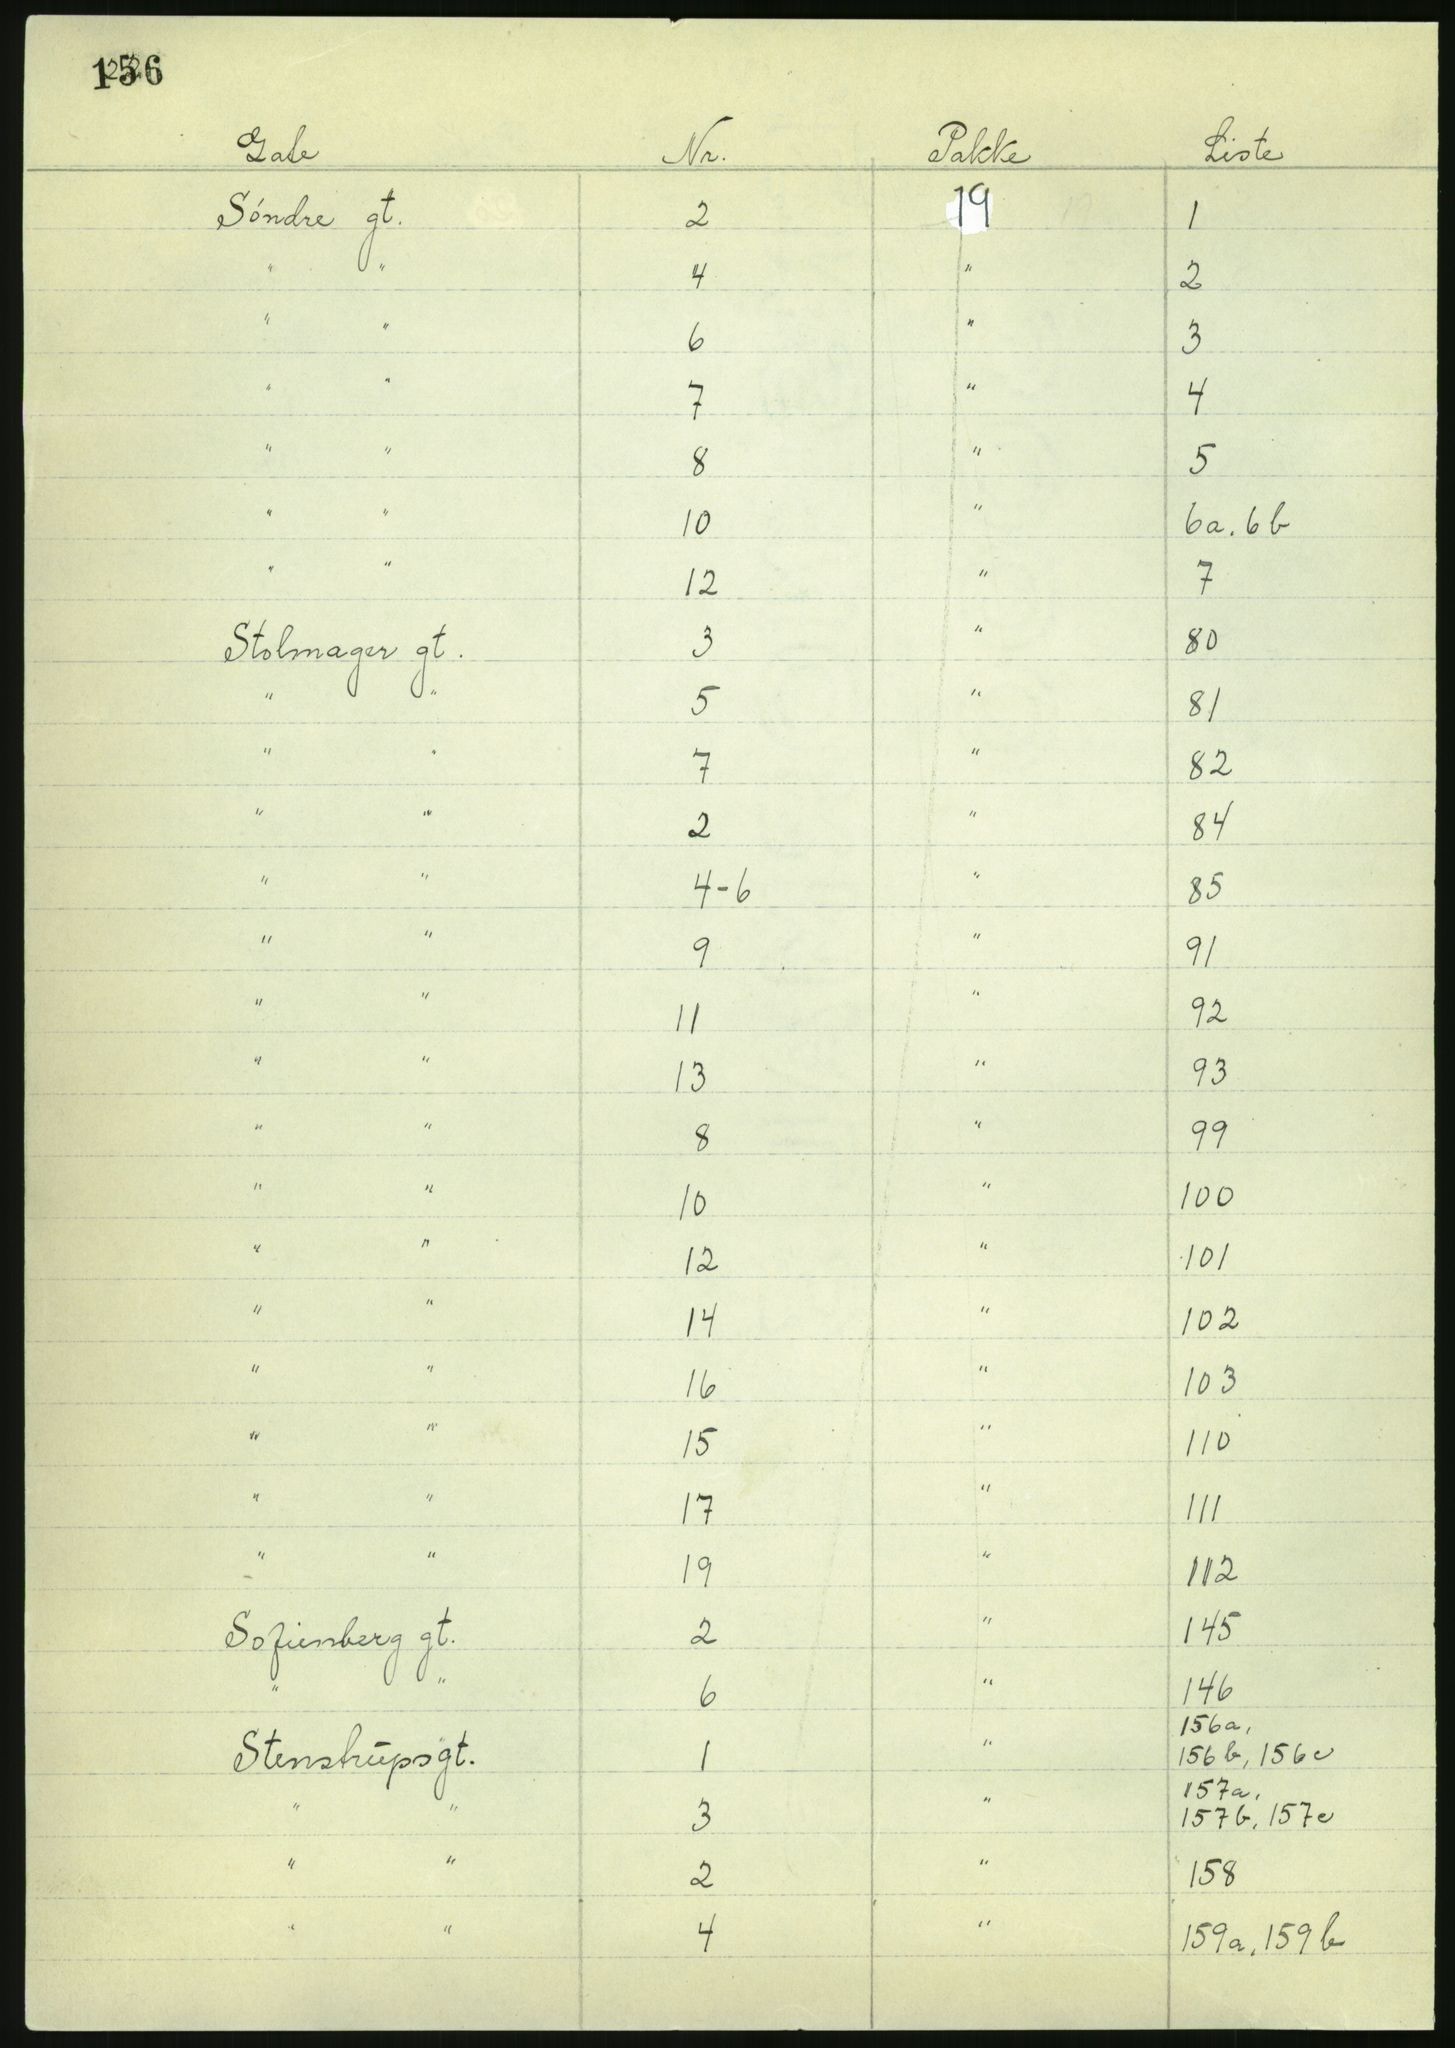 156
Gate Nr. Pakke Liste
Söndre gt. 2 19 1
" " 4 " 2
" " 6 " 3
" " 7 " 4
" " 8 " 5
" " 10 " 6a. 6b
" " 12 " 7
Stolmager gt. 3 " 80
" " 5 " 81
" " 7 " 82
" " 2 " 84
" " 4-6 " 85
" " 9 " 91
" " 11 " 92
" " 13 " 93
" " 8 " 99
" " 10 " 100
" " 12 " 101
" " 14 " 102
" " 16 " 103
" " 15 " 110
" " 17 " 111
" " 19 " 112
Sofienberg gt. 2 " 145
" " 6 " 146
156a,
Stenstrupsgt. 1 " 156b, 156c
157a,
" " 3 " 157b, 157c
" " 2 " 158
" " 4 " 159a, 159b